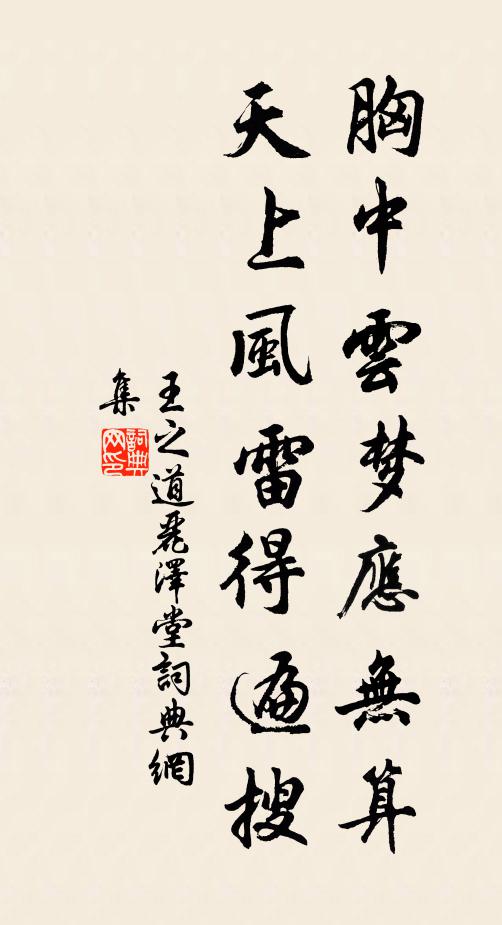 胸中雲梦應無算
天上風雷得遍搜
王之道麗澤堂詞典網
集
詞典
网印